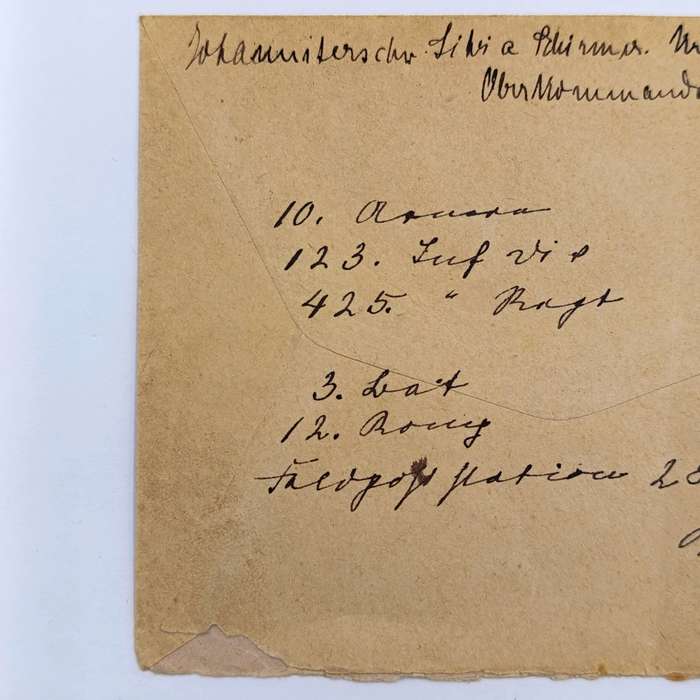 Johanniterschw. Silvia Schirmer.
Oberkommando
10. Armee
123. Inf Div
425. " Regt
3. Bat
12. Komp
Feldpost station 28